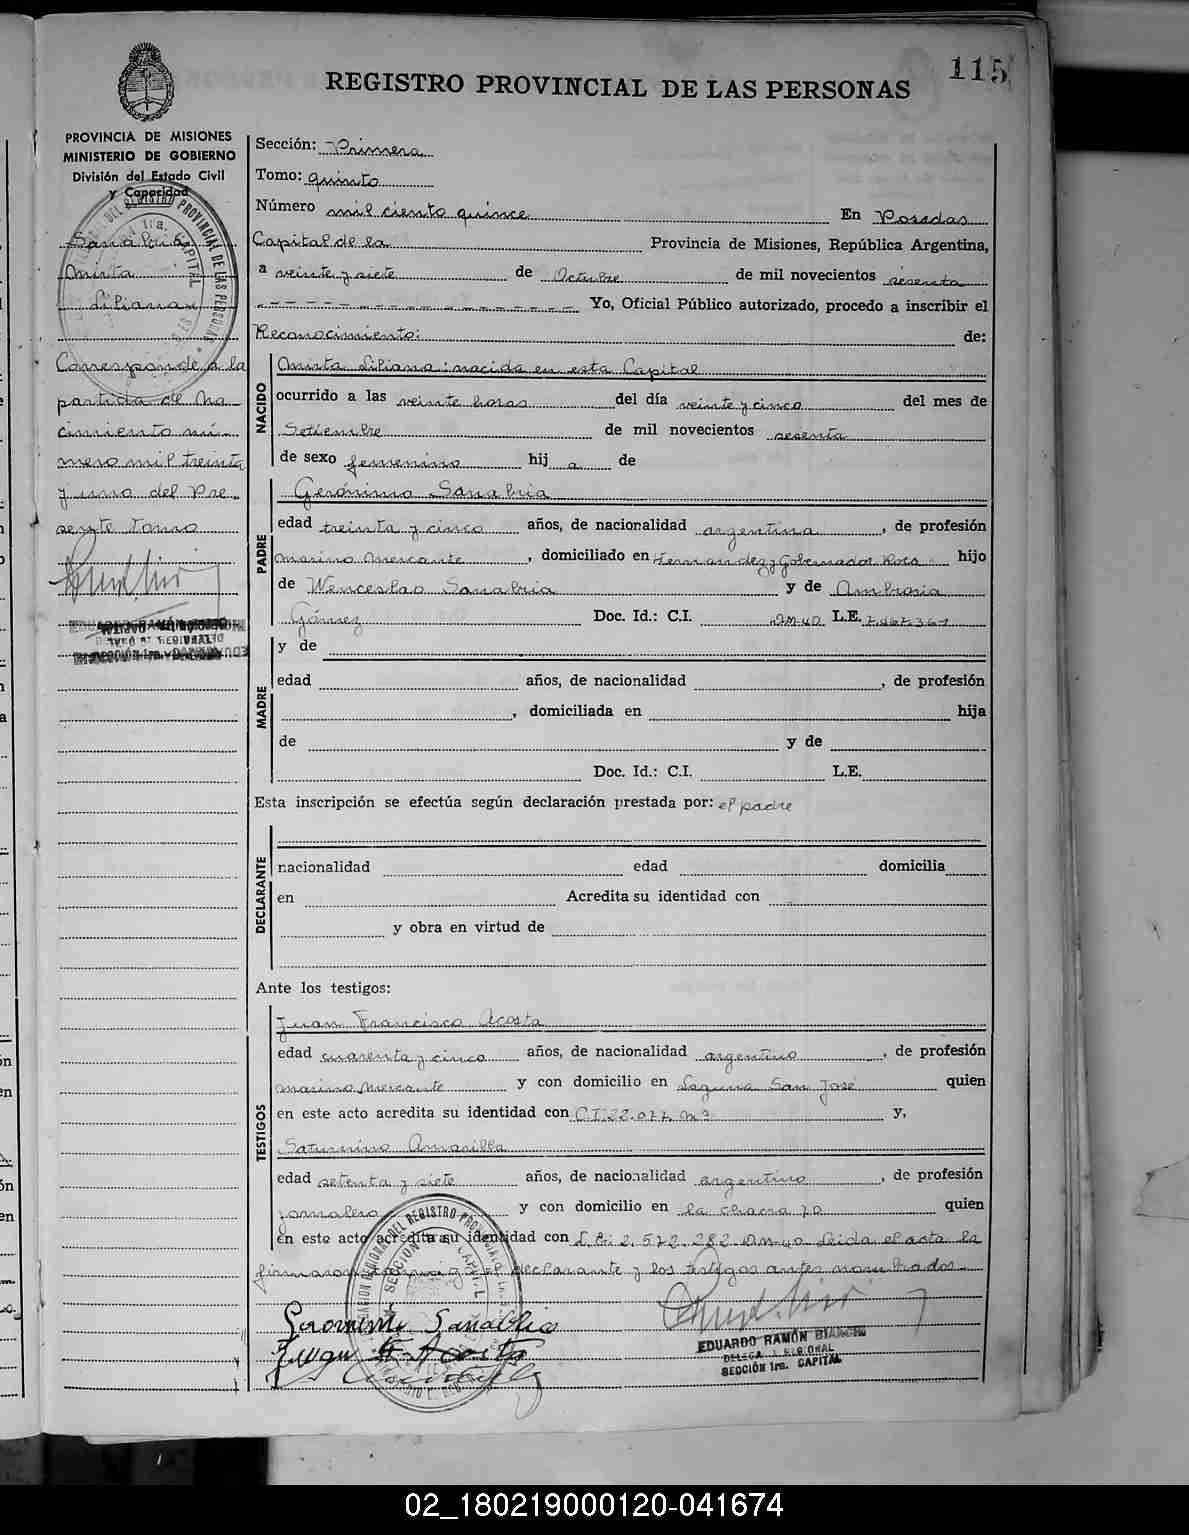 115
REGISTRO PROVINCIAL DE LAS PERSONAS
PROVINCIA DE MISIONES
MINISTERIO DE GOBIERNO
División del Estado Civil
y Capacidad
Sanabria
Mirta
Liliana
Corresponde a la
partida de Na-
cimiento nú-
mero mil treinta
y uno del Pre-
sente tomo
Sección: Primera
Tomo: quinto
Número mil ciento quince En Posadas
Capital de la Provincia de Misiones, República Argentina,
a veinte y siete de Octubre de mil novecientos sesenta
Yo, Oficial Público autorizado, procedo a inscribir el
Reconocimiento: de:
NACIDO
Mirta Liliana: nacida en esta Capital
ocurrido a las veinte horas del día veinte y cinco del mes de
Setiembre de mil novecientos sesenta
de sexo femenino hij a de
PADRE
Gerónimo Sanabria
edad treinta y cinco años, de nacionalidad argentina, de profesión
marino mercante, domiciliado en Hernandez y Gobernador Roca hijo
de Wenceslao Sanabria y de Ambrosia
Gómez Doc. Id.: C.I. DM 40 L.E. 7.467.361
MADRE
y de
edad años, de nacionalidad , de profesión
, domiciliada en hija
de y de
Doc. Id.: C.I. L.E.
Esta inscripción se efectúa según declaración prestada por: el padre
DECLARANTE
nacionalidad edad domicilia
en Acredita su identidad con
y obra en virtud de
Ante los testigos:
TESTIGOS
Juan Francisco Acosta
edad cuarenta y cinco años, de nacionalidad argentino, de profesión
marino mercante y con domicilio en Laguna San José quien
en este acto acredita su identidad con C.I. 22.077 y,
Saturnino Amarilla
edad setenta y siete años, de nacionalidad argentino, de profesión
jornalero y con domicilio en la chacra 70 quien
en este acto acredita su identidad con L.E. 2.572.282 DM 40 Leida el acta la
firmaron conmigo el declarante y los testigos antes nombrados
Geronimo Sanabria
Juan F Acosta
EDUARDO RAMÓN BIANCHI
DELEGADO REGIONAL
SECCIÓN 1ra. CAPITAL
02_180219000120-041674